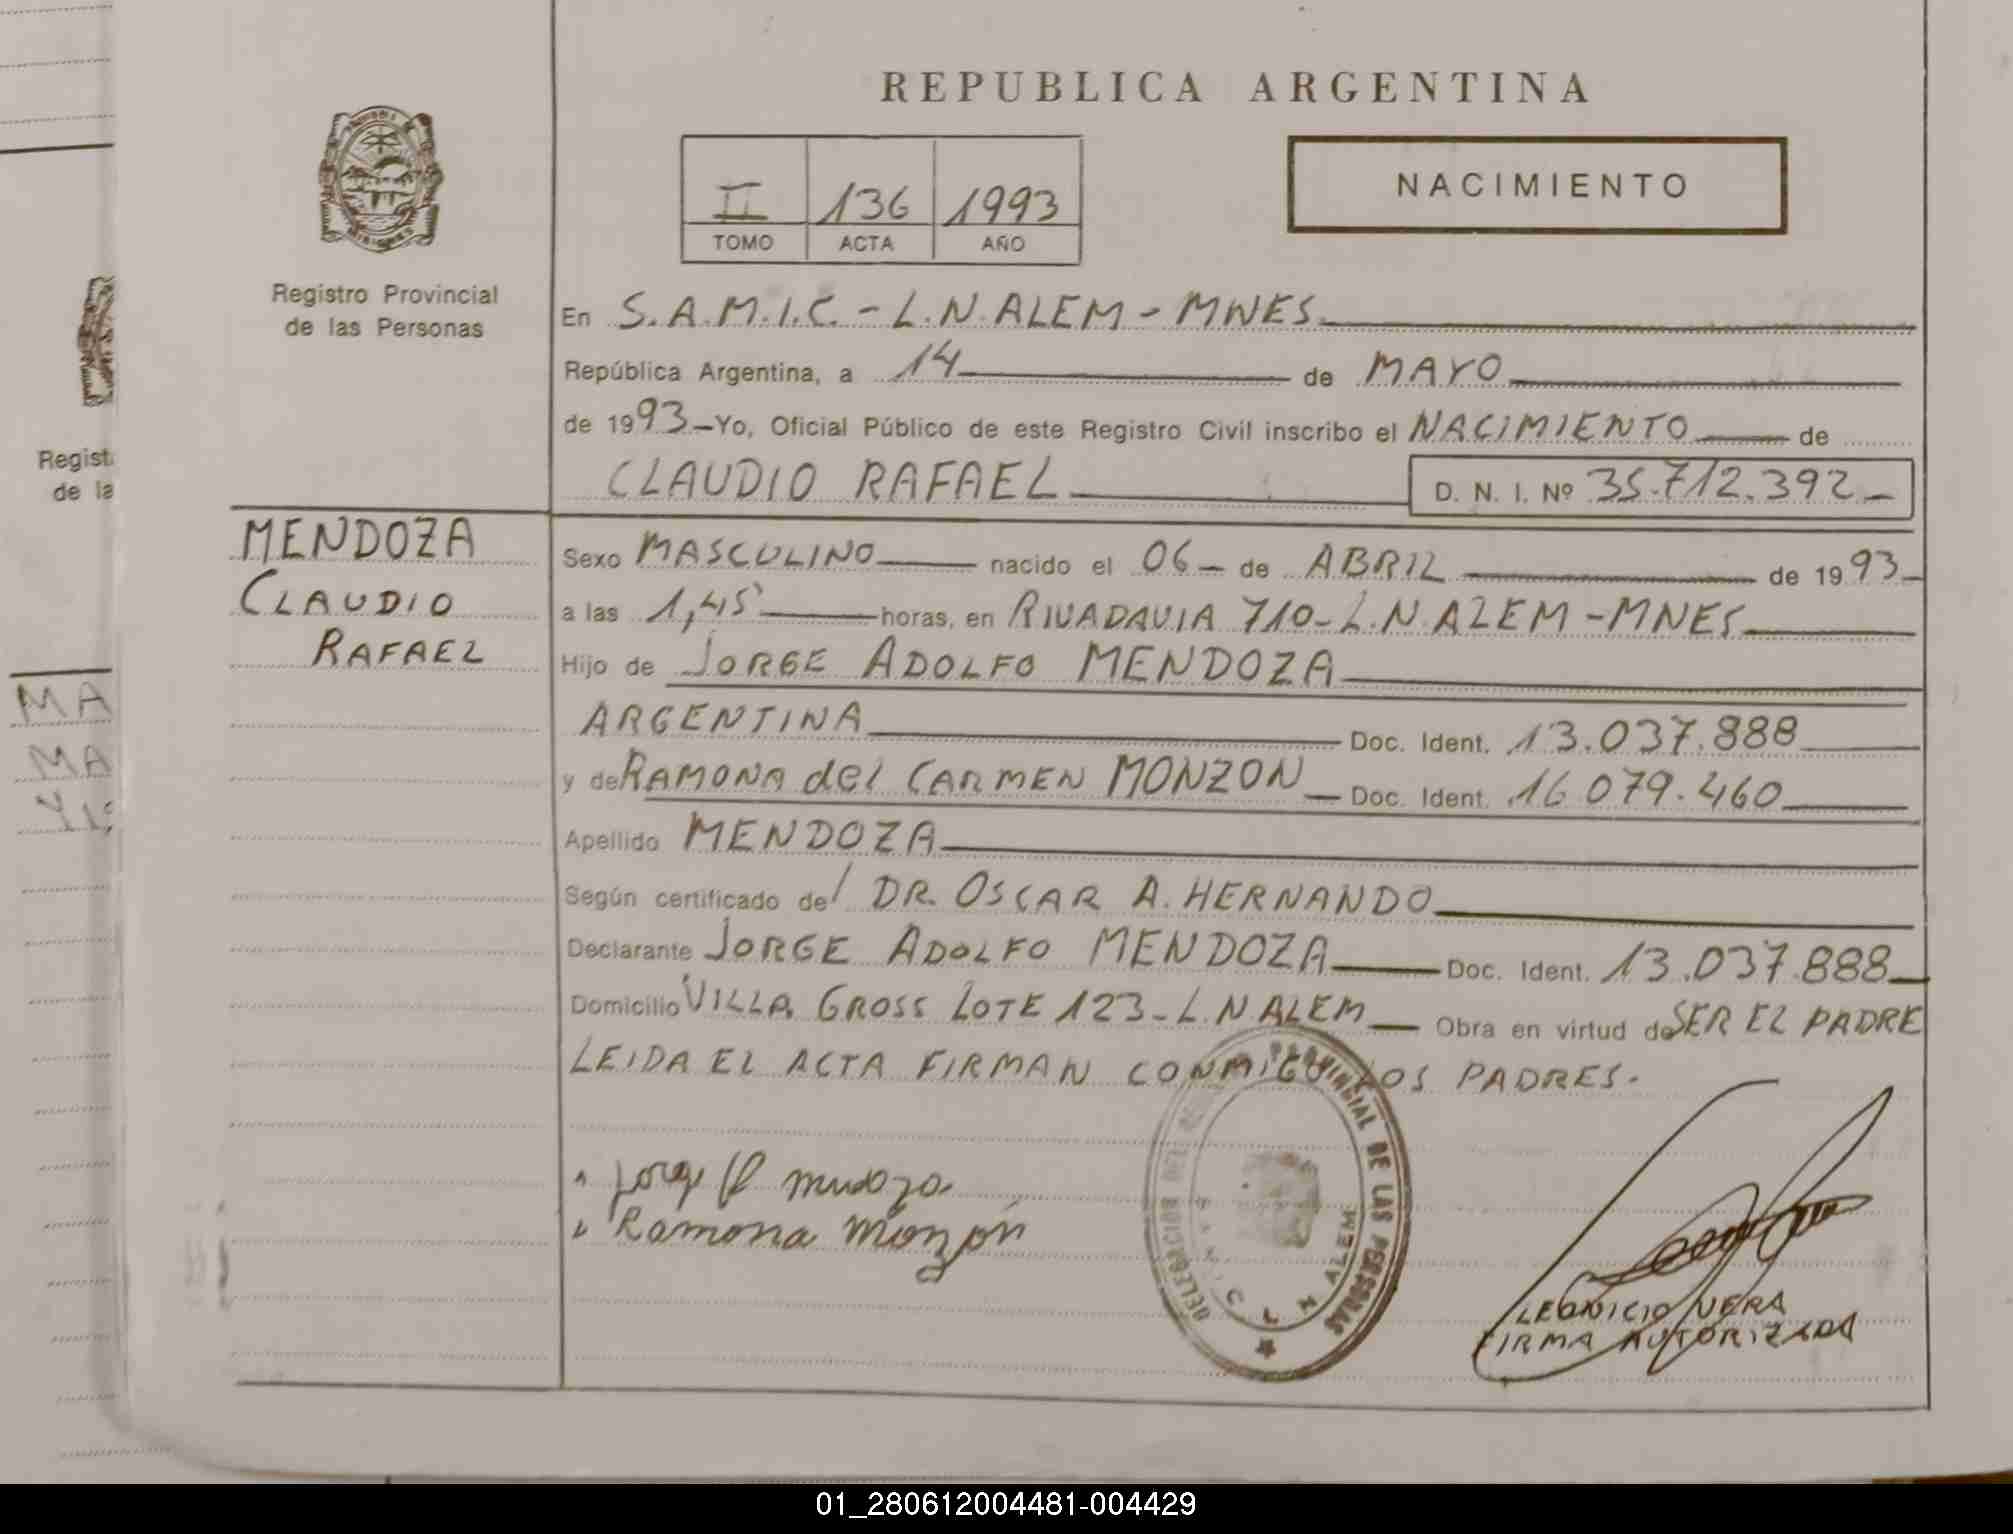 REPUBLICA ARGENTINA
NACIMIENTO
II 136 1993
TOMO ACTA AÑO
MISIONES
Registro Provincial
de las Personas
En S.A.M.I.C. - L.N.ALEM - MNES.
República Argentina, a 14 de MAYO
de 1993 - Yo, Oficial Público de este Registro Civil inscribo el NACIMIENTO de
CLAUDIO RAFAEL D. N. I. Nº 35.712.392
MENDOZA
CLAUDIO
RAFAEL
Sexo MASCULINO nacido el 06 de ABRIL de 1993
a las 1,45' horas, en RIVADAVIA 710 - L.N.ALEM - MNES
Hijo de JORGE ADOLFO MENDOZA
ARGENTINA Doc. Ident. 13.037.888
y de RAMONA del CARMEN MONZON Doc. Ident. 16.079.460
Apellido MENDOZA
Según certificado del DR. OSCAR A. HERNANDO
Declarante JORGE ADOLFO MENDOZA Doc. Ident. 13.037.888
Domicilio VILLA GROSS LOTE 123 - L.N ALEM Obra en virtud de SER EL PADRE
LEIDA EL ACTA FIRMAN CONMIGO LOS PADRES.
Jorge A Mendoza
Ramona Monzón
DELEGACION DEL PROVINCIAL DE LAS PERSONAS
L N ALEM
LEONICIO VERA
FIRMA AUTORIZADA
Regist
de la
MA
MA
01_280612004481-004429